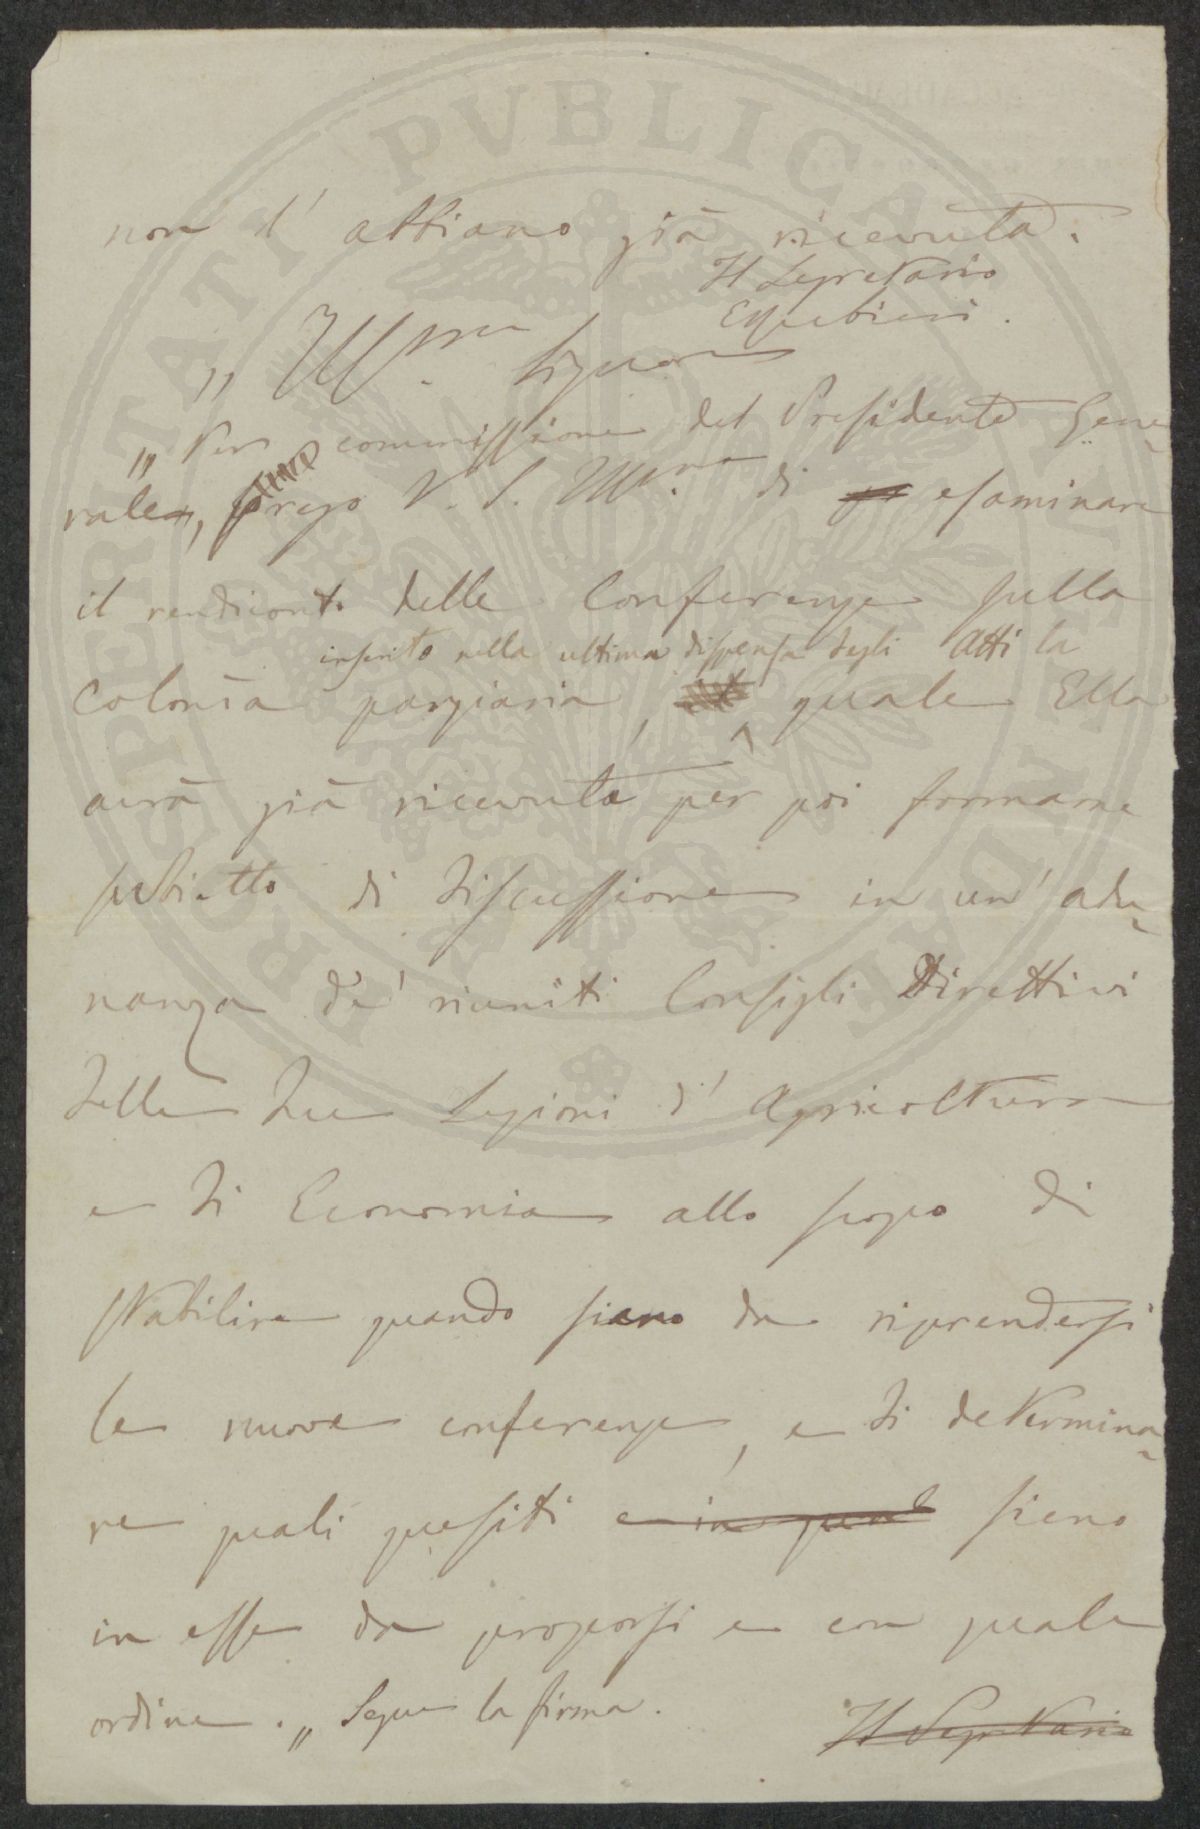 non l' abbiano già ricevuta.
Il Segretario
„ Ill.mo Signore
„ Per commissione del Presidente Gene-
rale, prego V. S. Ill.ma di esaminare
il rendiconto delle Conferenze sulla
inserito nella ultima dispensa degli Atti la
Colonia parziaria, quale Ella
avrà già ricevuta per poi formarne
subietto di discussione in un' adu-
nanza de' riuniti Consigli Direttivi
delle due Sezioni d' Agricoltura
e di Economia allo scopo di
stabilire quando siano da riprendersi
le nuove conferenze, e di determina-
re quali quesiti e in quale sieno
in esse da proporsi e con quale
ordine. „ Segue la firma.
Il Segretario
PROSPERITATI PVBLICAE AVGENDAE